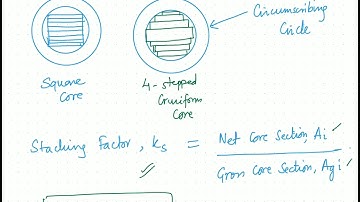 Circumscribing
Circle
Square
Core
4-stepped
Cruciform
Core
Stacking Factor, Ks = Net Core Section, Ai
Gross Core Section, Agi